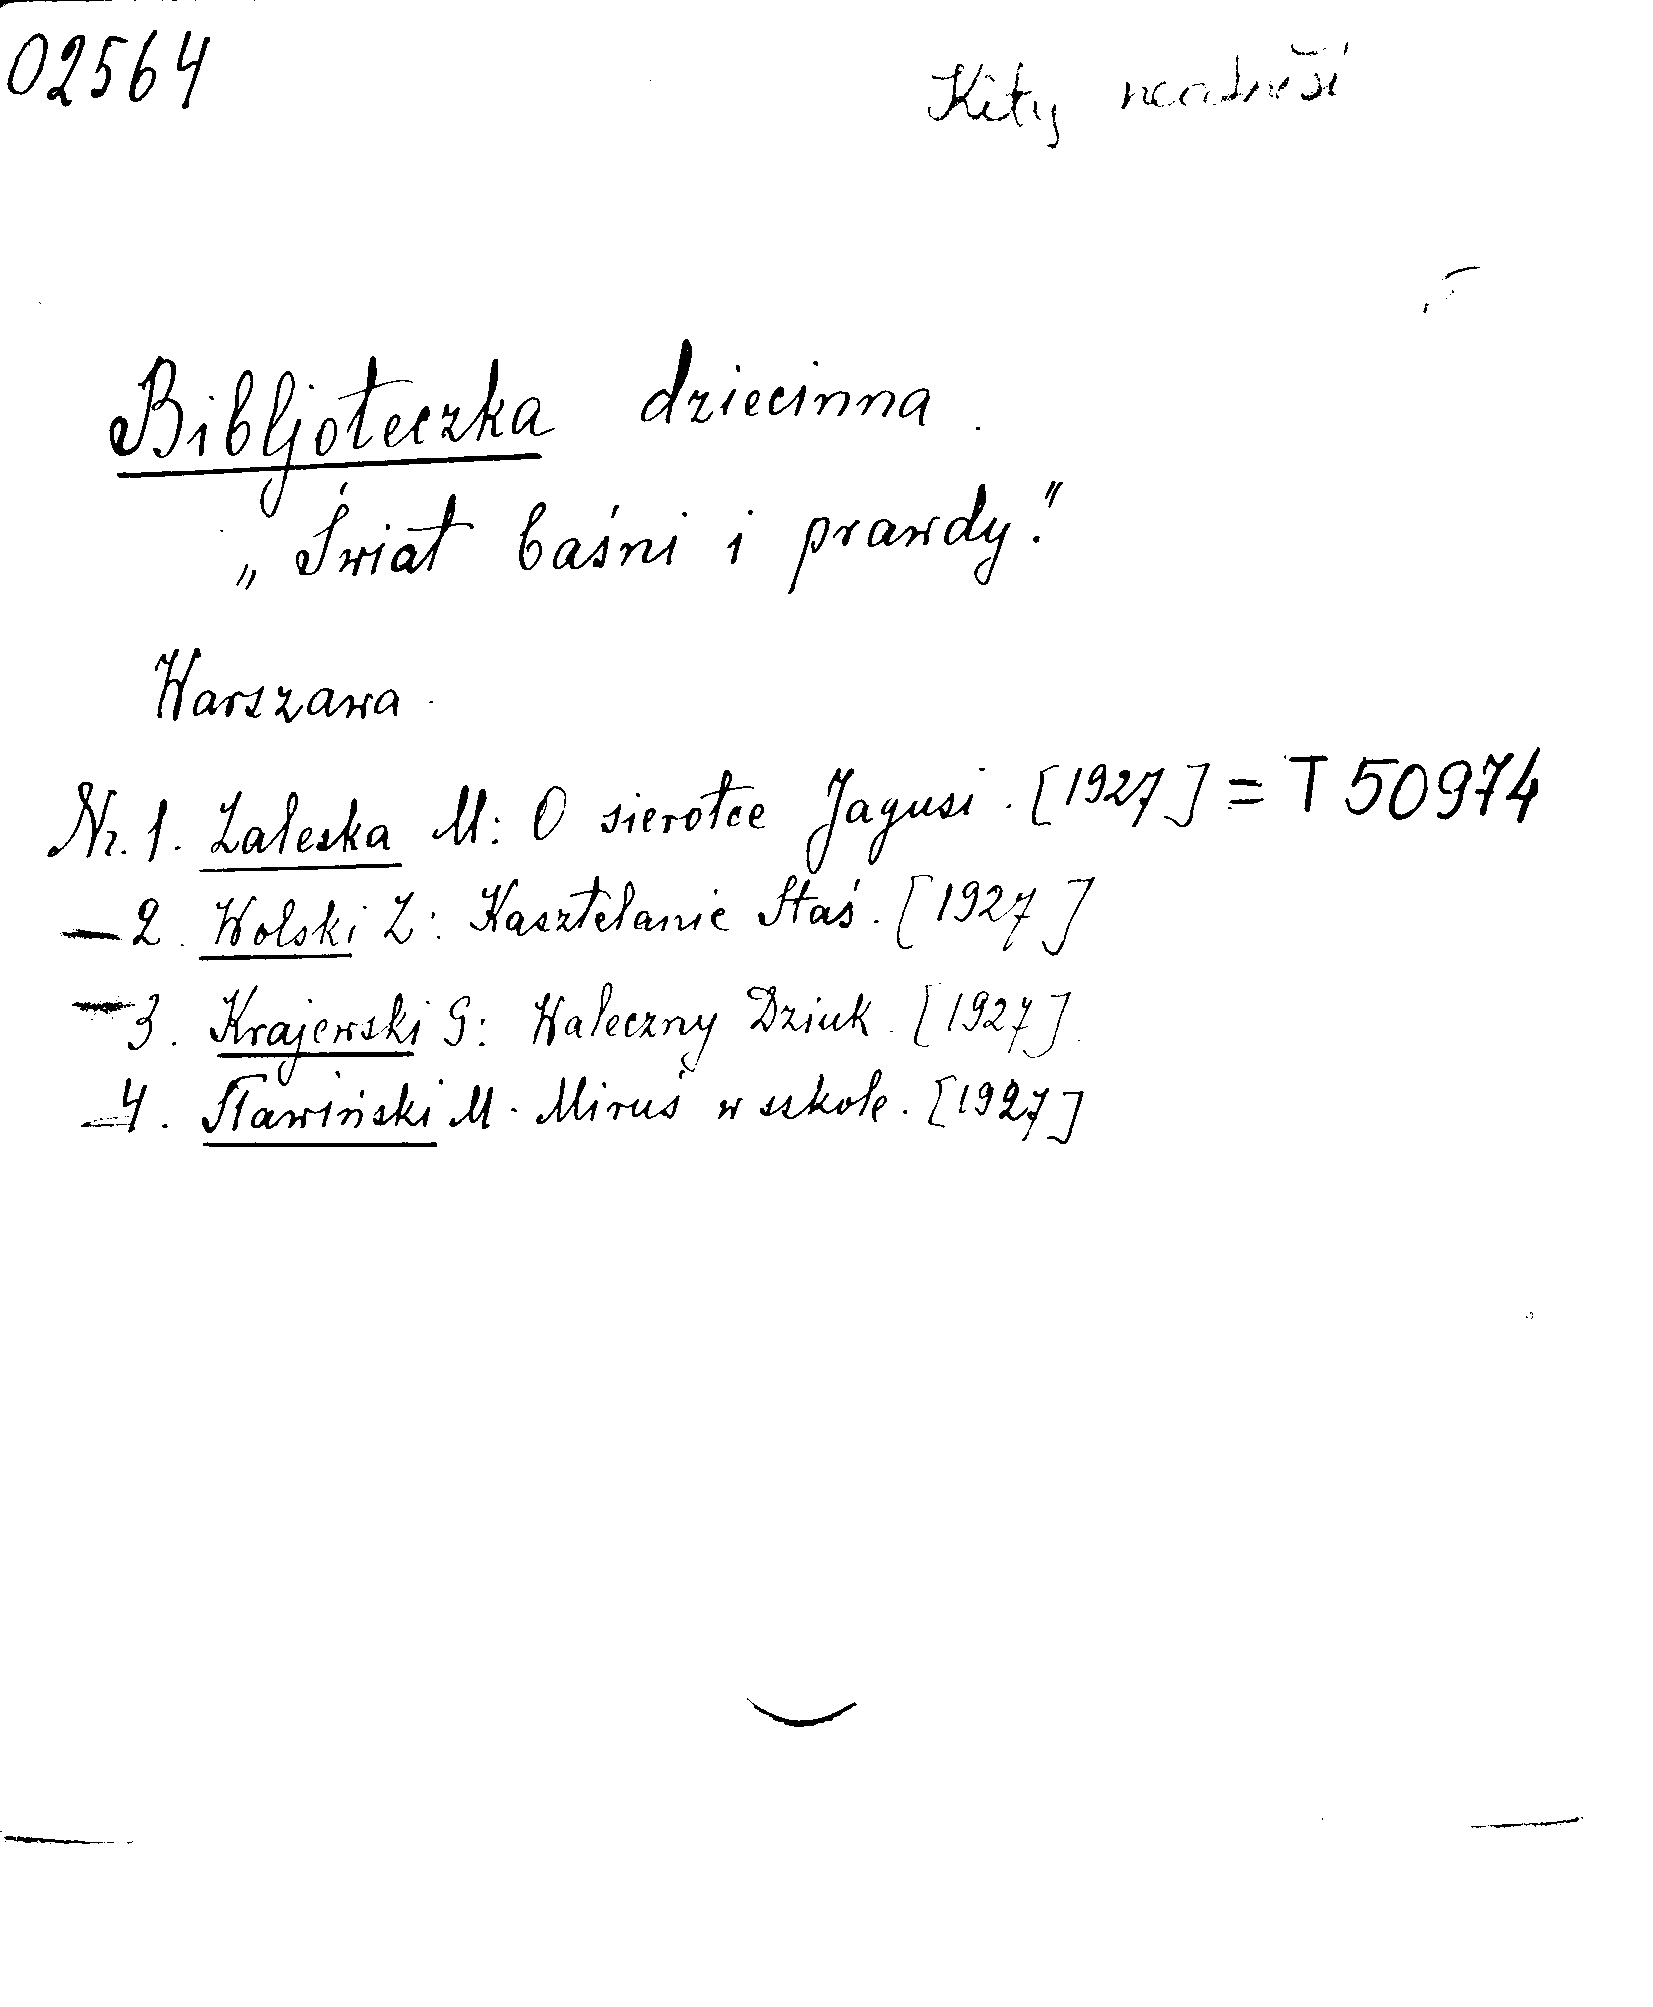 02564
Kity
Bibljoteczka dziecinna.
„Świat baśni i prawdy."
Warszawa.
Nr. 1. Zaleska M: O sierotce Jagusi. [1927] = T 50974
— 2. Wolski Z: Kasztelanic Staś. [1927]
— 3. Krajewski G: Waleczny Dziuk. [1927].
— 4. Sławiński M. Miruś w szkole. [1927]